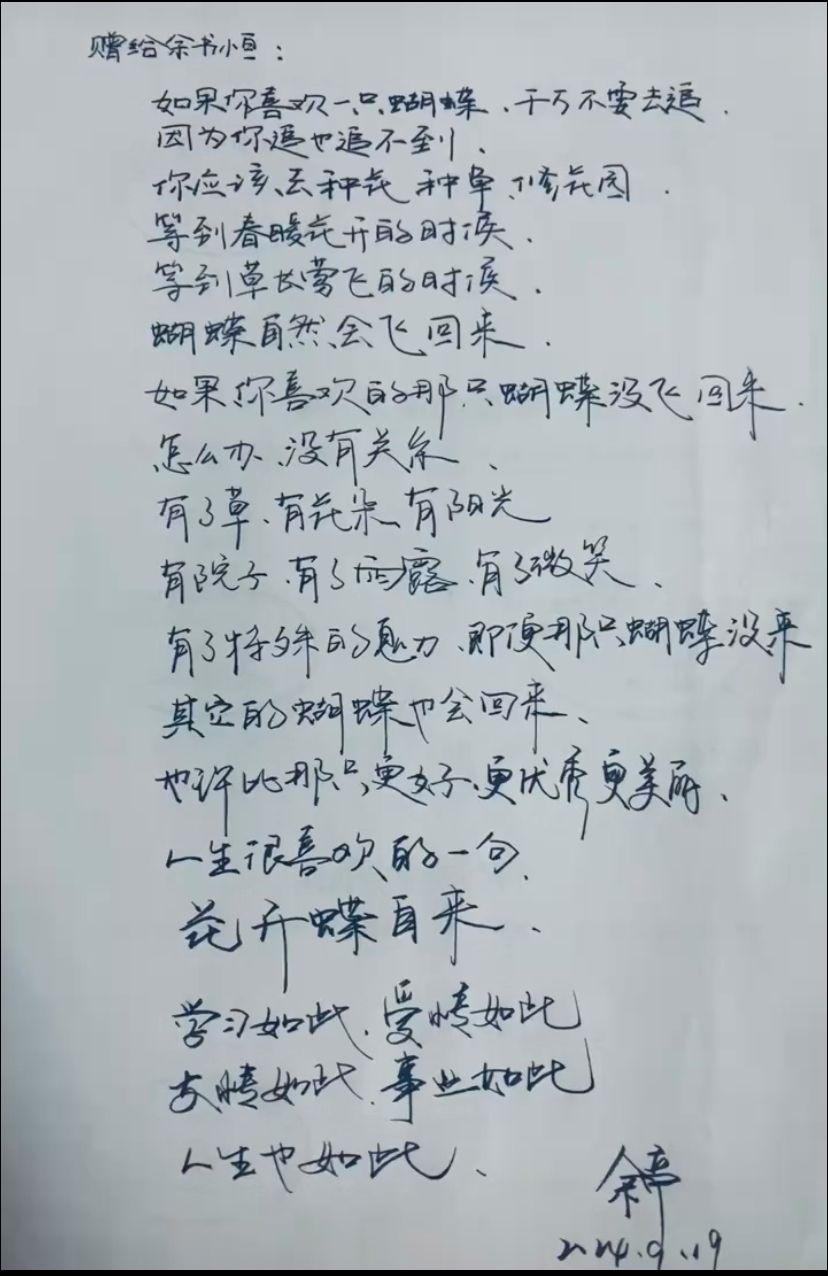 赠给余书小豆：
如果你喜欢一只蝴蝶、千万不要去追．
因为你追也追不到、
你应该、去种花 种草、修花园．
等到春暖花开的时候．
等到草长莺飞的时候．
蝴蝶自然、会飞回来．
如果你喜欢的那只蝴蝶没飞回来．
怎么办、没有关系、
有了草、有花朵、有阳光
有院子、有了雨露、有了微笑、
有了特殊的魅力、即便那只蝴蝶没来
其它的蝴蝶也会回来、
也许比那只更好、更优秀更美丽、
人生很喜欢的一句、
花开蝶自来、
学习如此、爱情如此
友情如此、事业如此
人生也如此、
余亭
2024.9.19